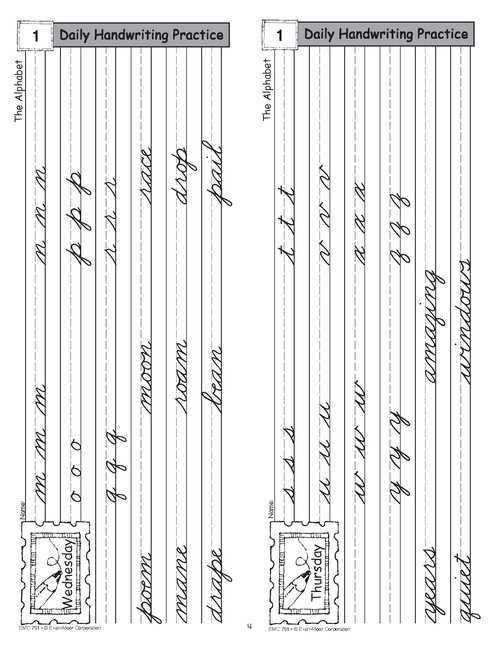 1 Daily Handwriting Practice
The Alphabet
Name:
Wednesday
m m m n n n
o o o p p p
q q q r r r
poem moon race
mane roam drop
drape bean pail
EMC 791 • © Evan-Moor Corporation
4
1 Daily Handwriting Practice
The Alphabet
Name:
Thursday
s s s t t t
u u u v v v
w w w x x x
y y y z z z
years amazing
quiet windows
EMC 791 • © Evan-Moor Corporation